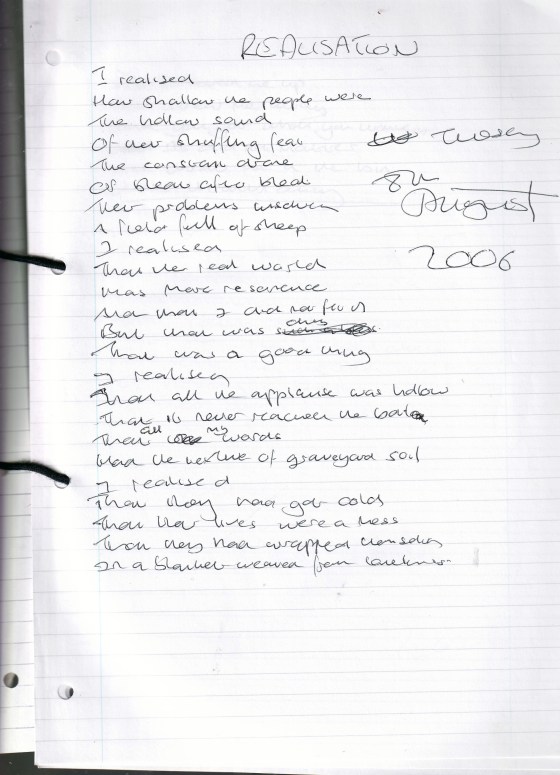 REALISATION
I realised
How shallow the people were
The hollow sound
Of their shuffling feat
The constant drone
Of bleat after bleat
Their problems
A field full of sheep
I realised
That the real world
Was more
that I did not
But that was
That was a good thing
I realised
That all the applause was hollow
That it never reached the
That all my words
Had the texture of graveyard soil
I realised
That they had got cold
That their lives were a mess
That they had wrapped themselves
In a blanket weaved from
Tuesday
8th
August
2006